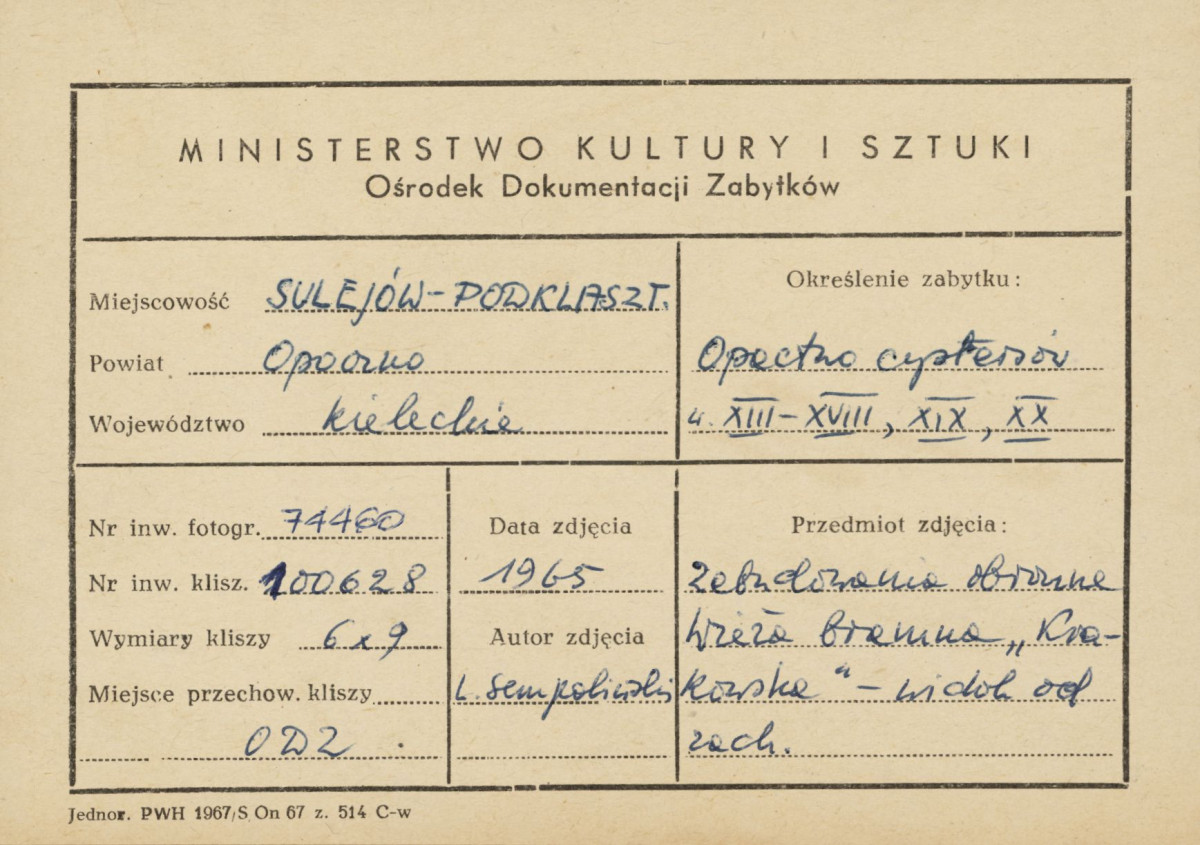 MINISTERSTWO KULTURY I SZTUKI
Ośrodek Dokumentacji Zabytków
Miejscowość SULEJÓW-PODKLASZT.
Powiat Opoczno
Województwo kieleckie
Określenie zabytku:
Opactwo cystersów
w. XIII-XVIII, XIX, XX
Nr inw. fotogr. 74460
Nr inw. klisz. 100628
Wymiary kliszy 6x9
Miejsce przechow. kliszy
ODZ
Data zdjęcia
1965
Autor zdjęcia
L. Sempoliński
Przedmiot zdjęcia:
zabudowania obronne
Wieża bramna „Kra-
kowska" - widok od
zach.
Jednor. PWH 1967/S On 67 z. 514 C-w